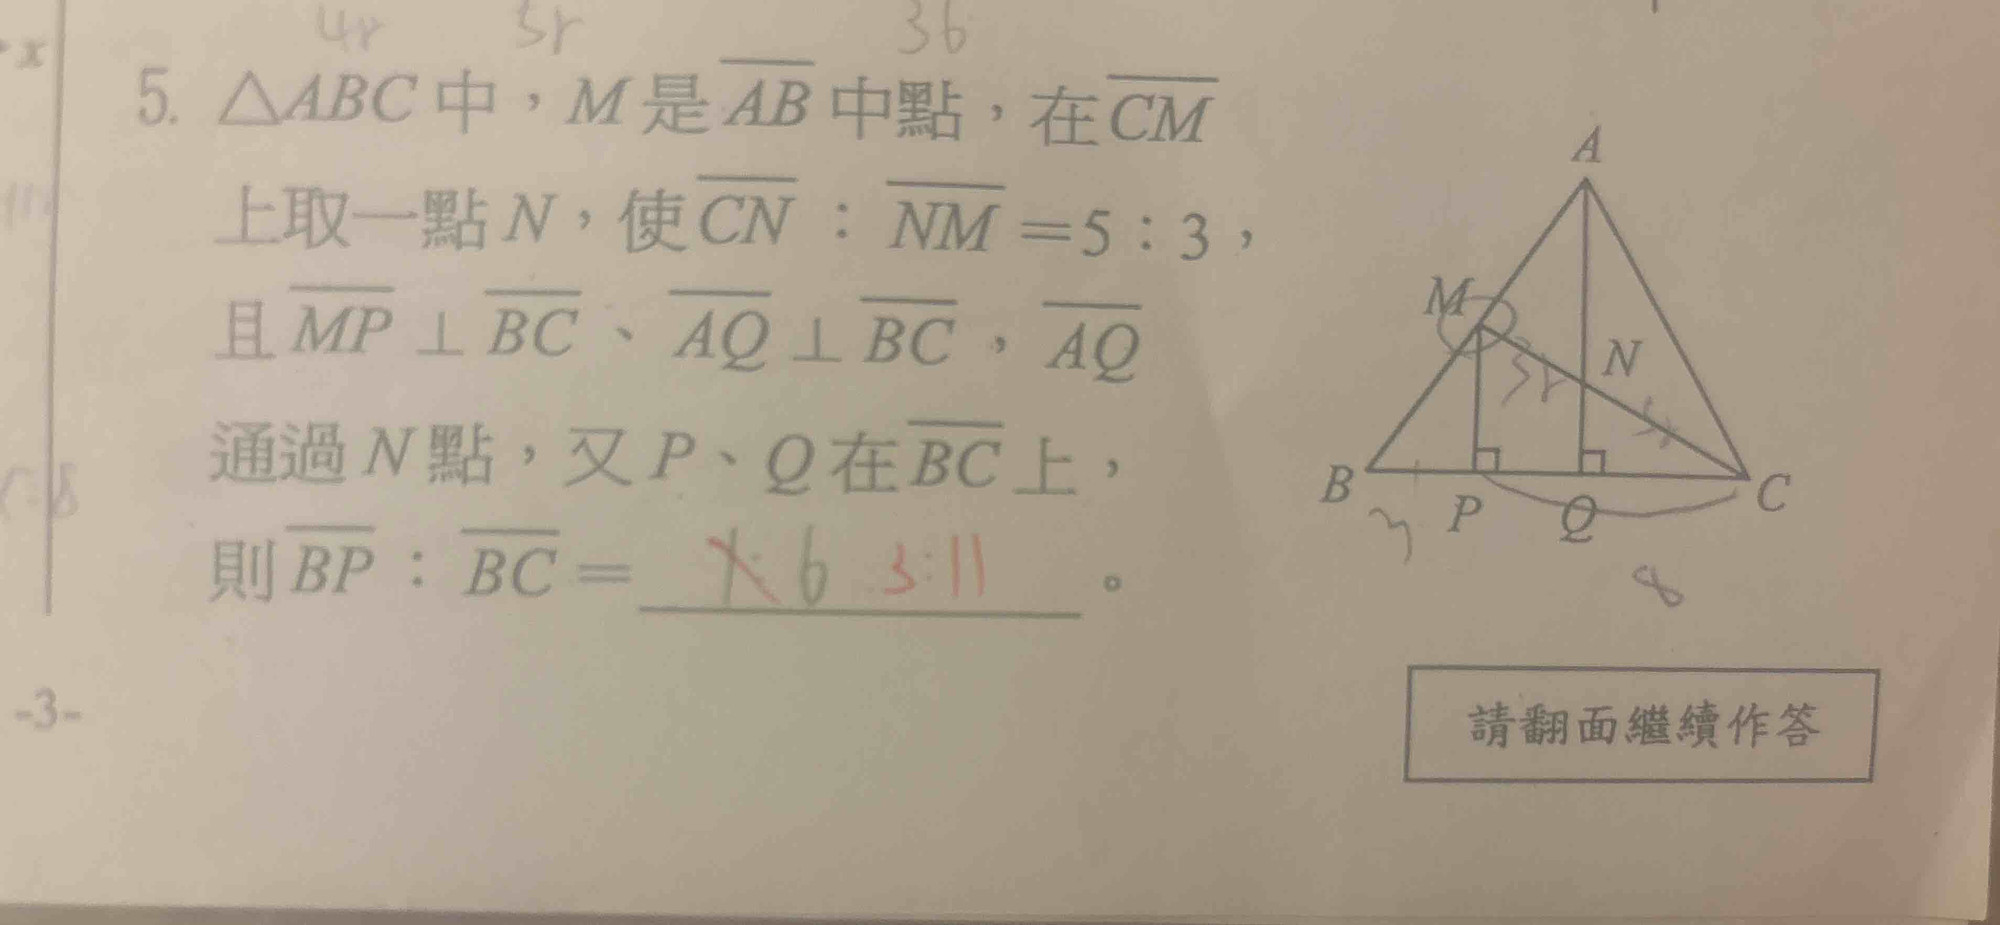 4r 5r 36
x
5. △ABC 中，M 是 AB 中點，在 CM
上取一點 N，使 CN：NM＝5：3，
且 MP⊥BC、AQ⊥BC，AQ
通過 N 點，又 P、Q 在 BC 上，
則 BP：BC＝ 1:6 3:11 。
A
M
N
3r
5r
B
P
Q
C
3
8
-3-
請翻面繼續作答